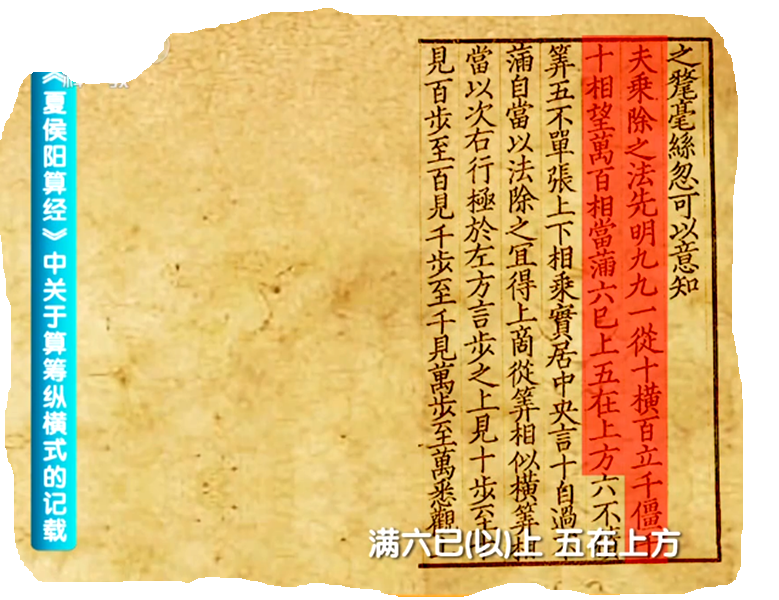 之氂毫絲忽可以意知
夫乘除之法先明九九一從十橫百立千僵
十相望萬百相當蒲六巳上五在上方六不
筭五不單張上下相乘實居中央言十自過
蒲自當以法除之冝得上商從筭相似橫筭
當以次右行極於左方言步之上見十步至
見百步至百見千步至千見萬步至萬悉觀
《夏侯阳算经》中关于算筹纵横式的记载
满六已(以)上 五在上方